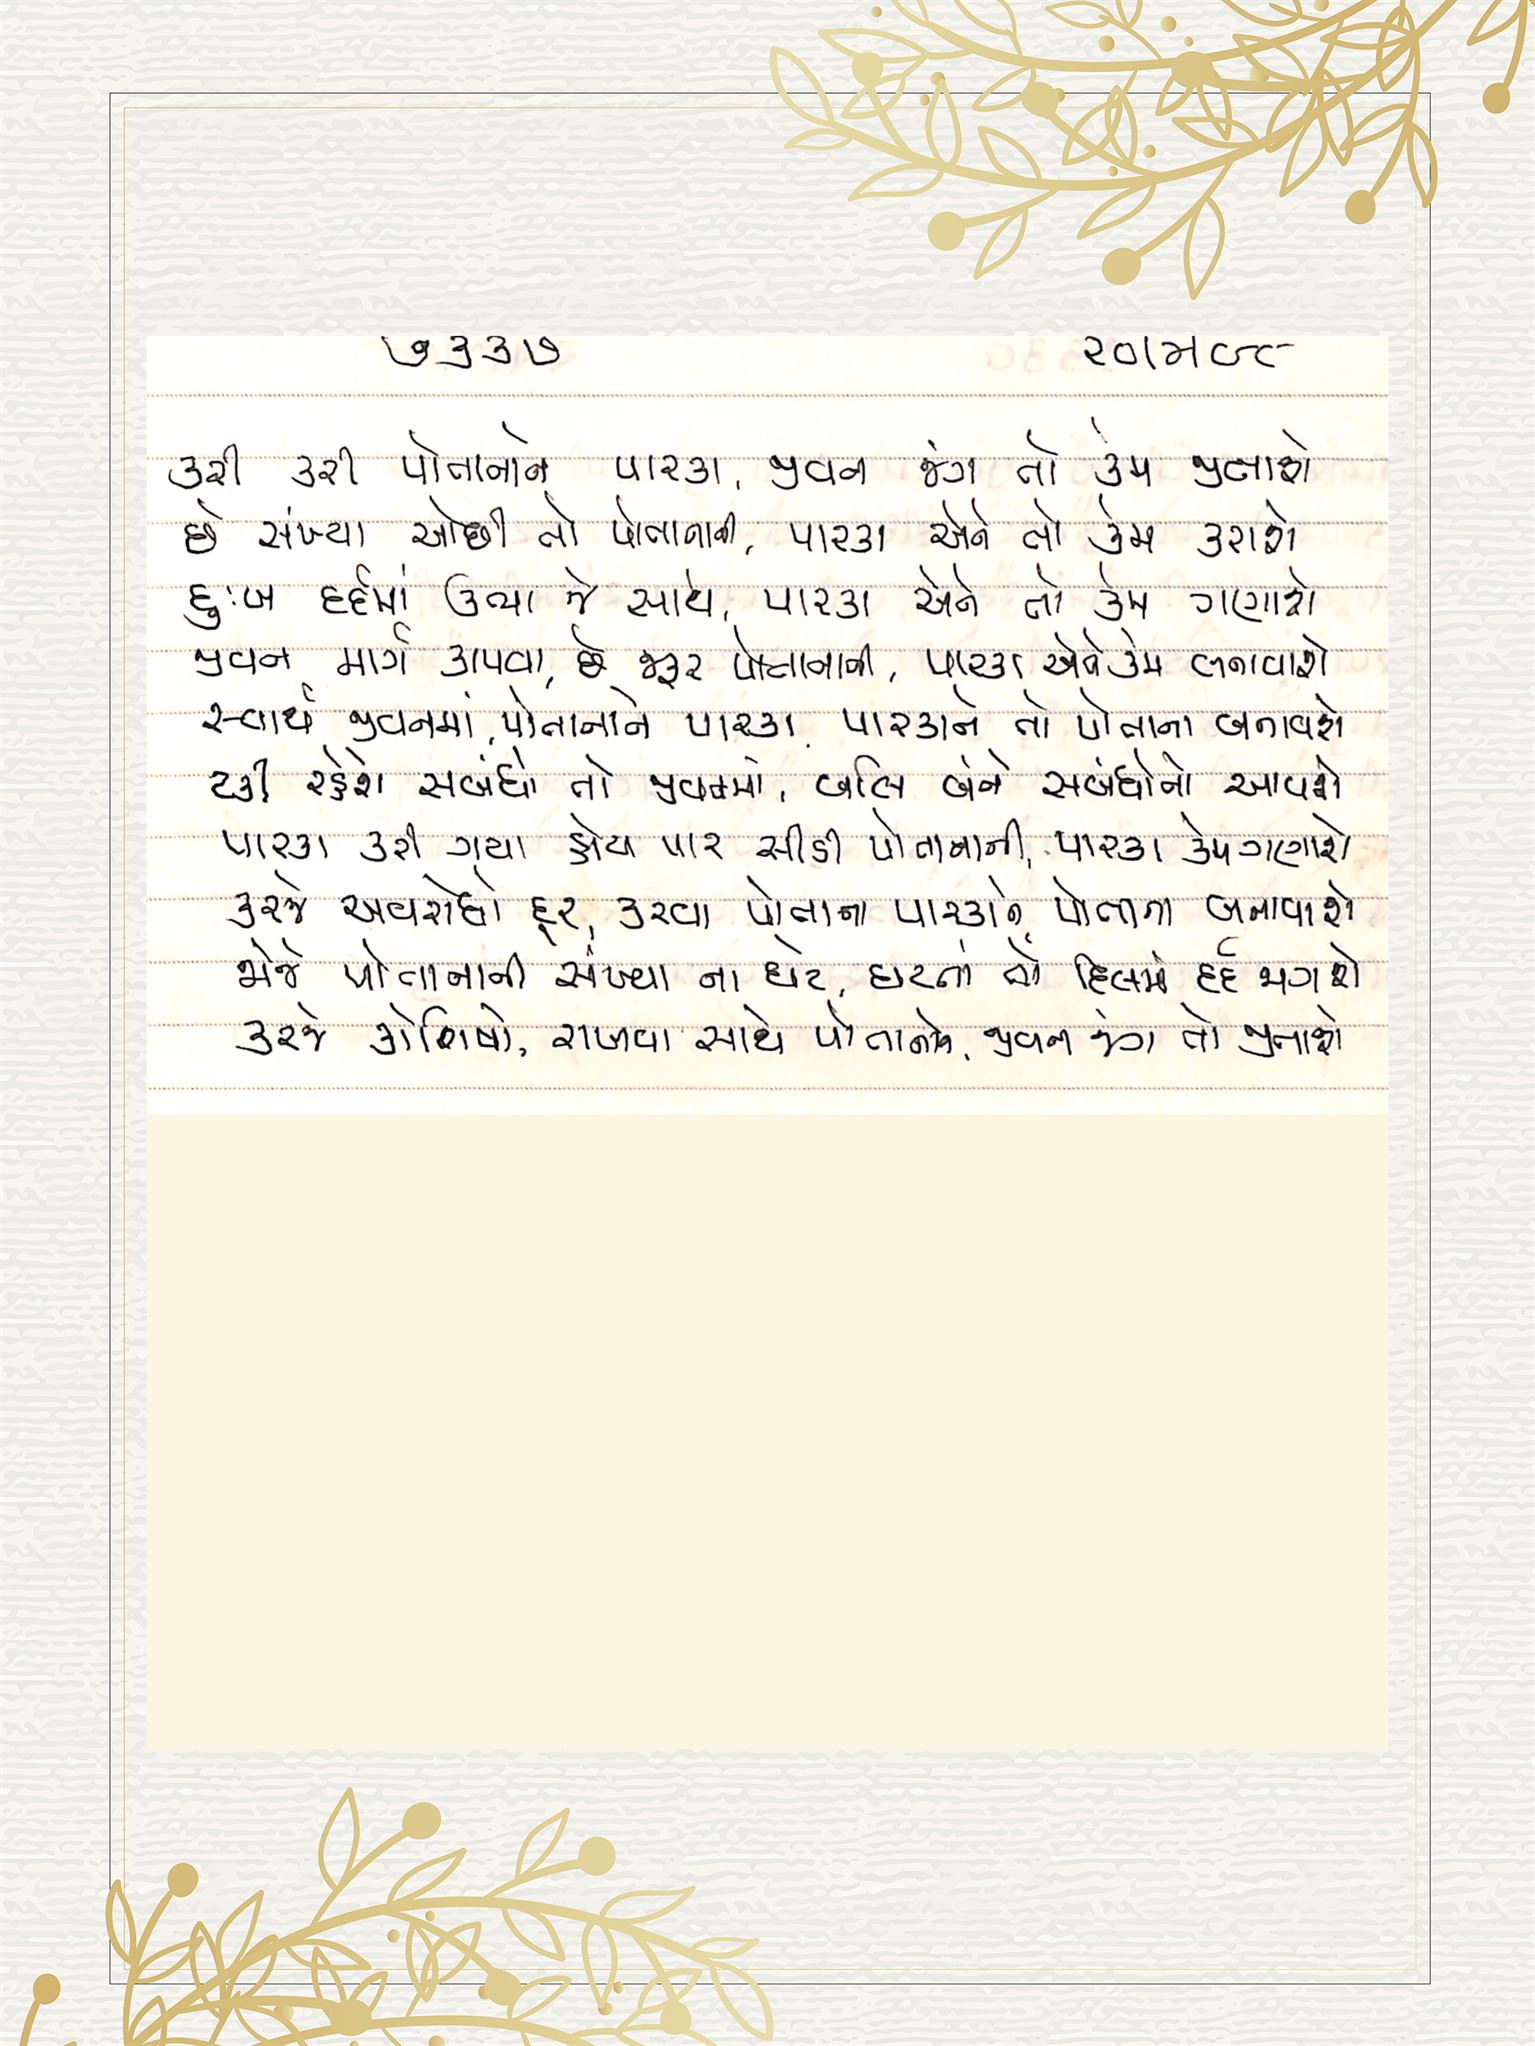 ૭૩૩૭ ૨૦૧મ૯૮
કરી કરી પોતાનાને પારકા, જીવન જંગ તો કેમ જીતાશે
છે સંખ્યા ઓછી તો પોતાનાની, પારકા એને તો કેમ કરાશે
દુઃખ દર્દમાં ઊભા જે સાથે, પારકા એને તો કેમ ગણાશે
જીવન માર્ગ કાપવા, છે જરૂર પોતાનાની, પારકા એને કેમ બનાવાશે
સ્વાર્થ જીવનમાં, પોતાનાને પારકા, પારકાને તો પોતાના બનાવશે
ટકી રહેશે સબંધો તો જીવનમાં, બલિ બંને સબંધોનો આપશે
પારકા કરી ગયા હોય પાર સીડી પોતાનાની, પારકા કેમ ગણાશે
કરજે અવરોધો દૂર, કરવા પોતાના પારકાને, પોતાના બનાવાશે
જોજે પોતાનાની સંખ્યા ના ઘટે, ઘટતાં તો દિલમાં દર્દ જાગશે
કરજે કોશિષો, રાખવા સાથે પોતાનાને, જીવન જંગ તો જીતાશે